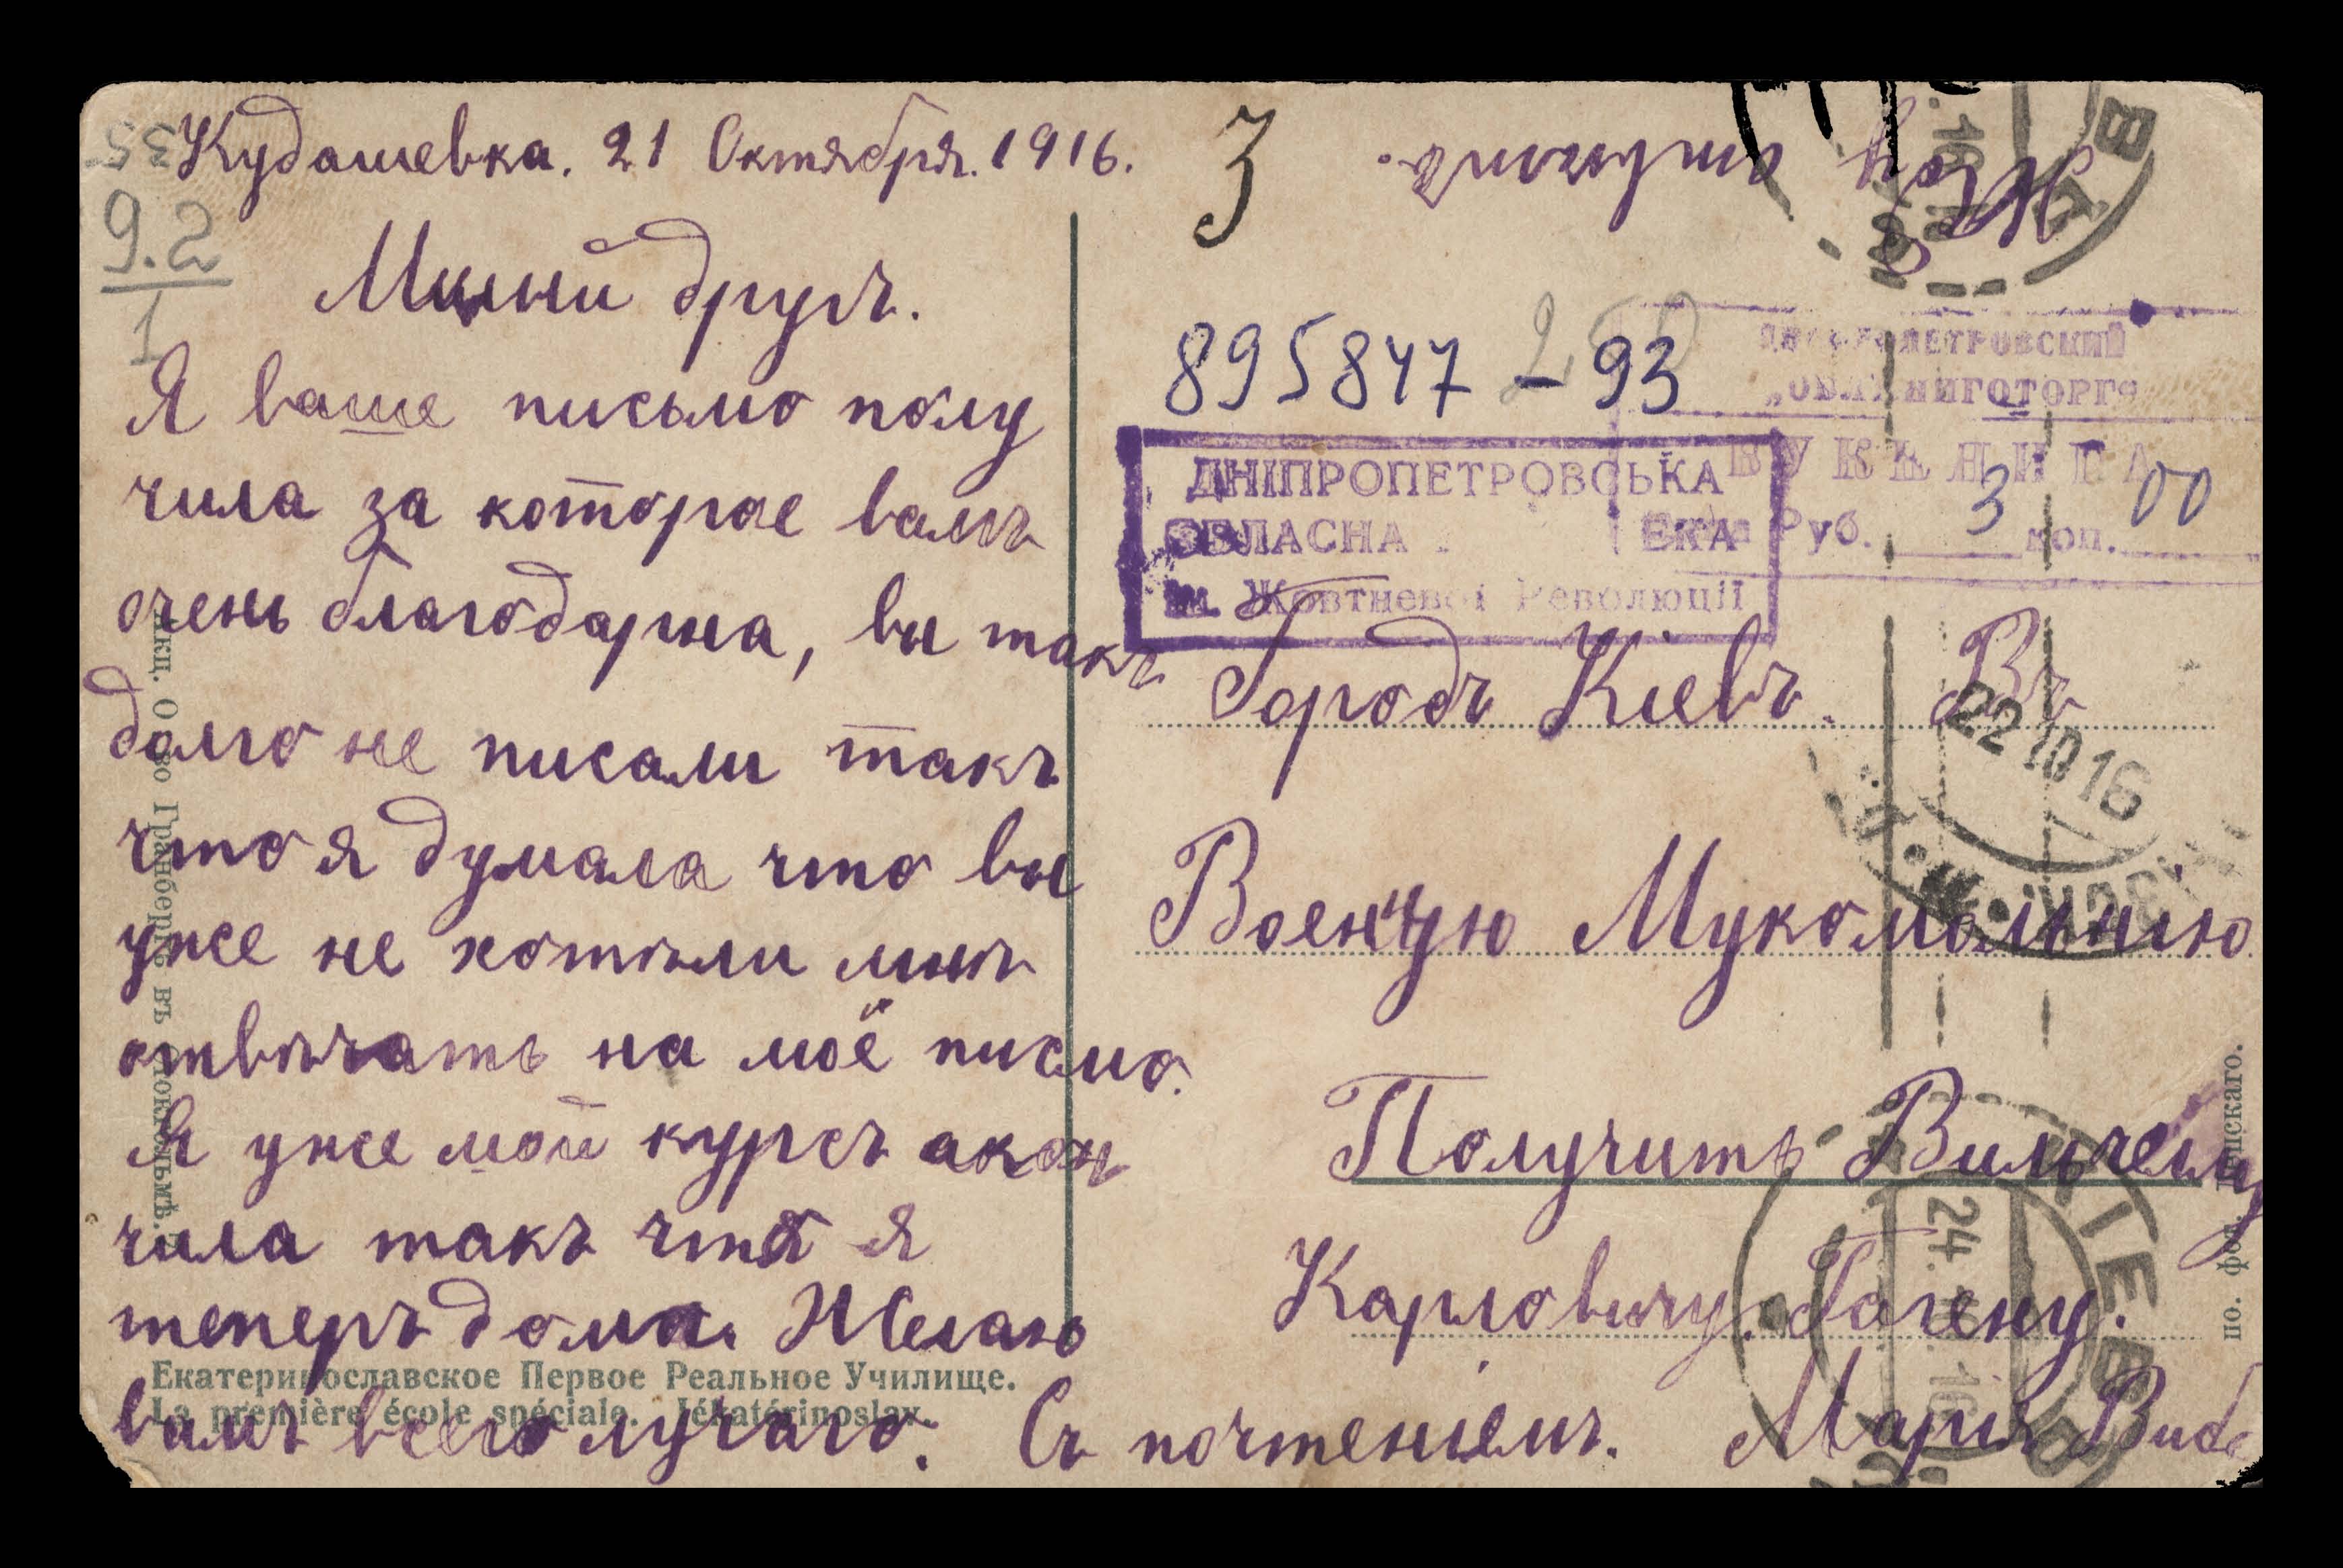 Кудашевка. 21 Октября. 1916.
Милый другъ.
Я ваше письмо полу
чила за которае вамъ
очень благодарна, вы такъ
долго не писали такъ
что я думала что вы
уже не хотѣли мнѣ
отвѣчать на моё писмо.
Я уже мой курсъ акон
чила такъ что я
теперъ дома. Желаю
вамъ всего лучаго.
Съ почтеніемъ. Марія
Жду отвѣта.
3
35
9.2
1
895847 - 93
250
ДНІПРОПЕТРОВСЬКА
ОБЛАСНА ЕКА
ім. Жовтневої Революції
ДНЕПРОПЕТРОВСКИЙ
„ОБЛКНИГОТОРГ"
БУККНИГА
Цена Руб. 3 коп. 00
Городъ Кіевъ. Въ
Военную Мукомольнію
Получить Вильгельму
Карловичу. Гагену.
22 10 16
КІЕВЪ
24. 16
Екатеринославское Первое Реальное Училище.
La première école spéciale. Iékatérinoslav.
Акц. О-во Гранбергъ въ Стокгольмѣ.
по. фот.